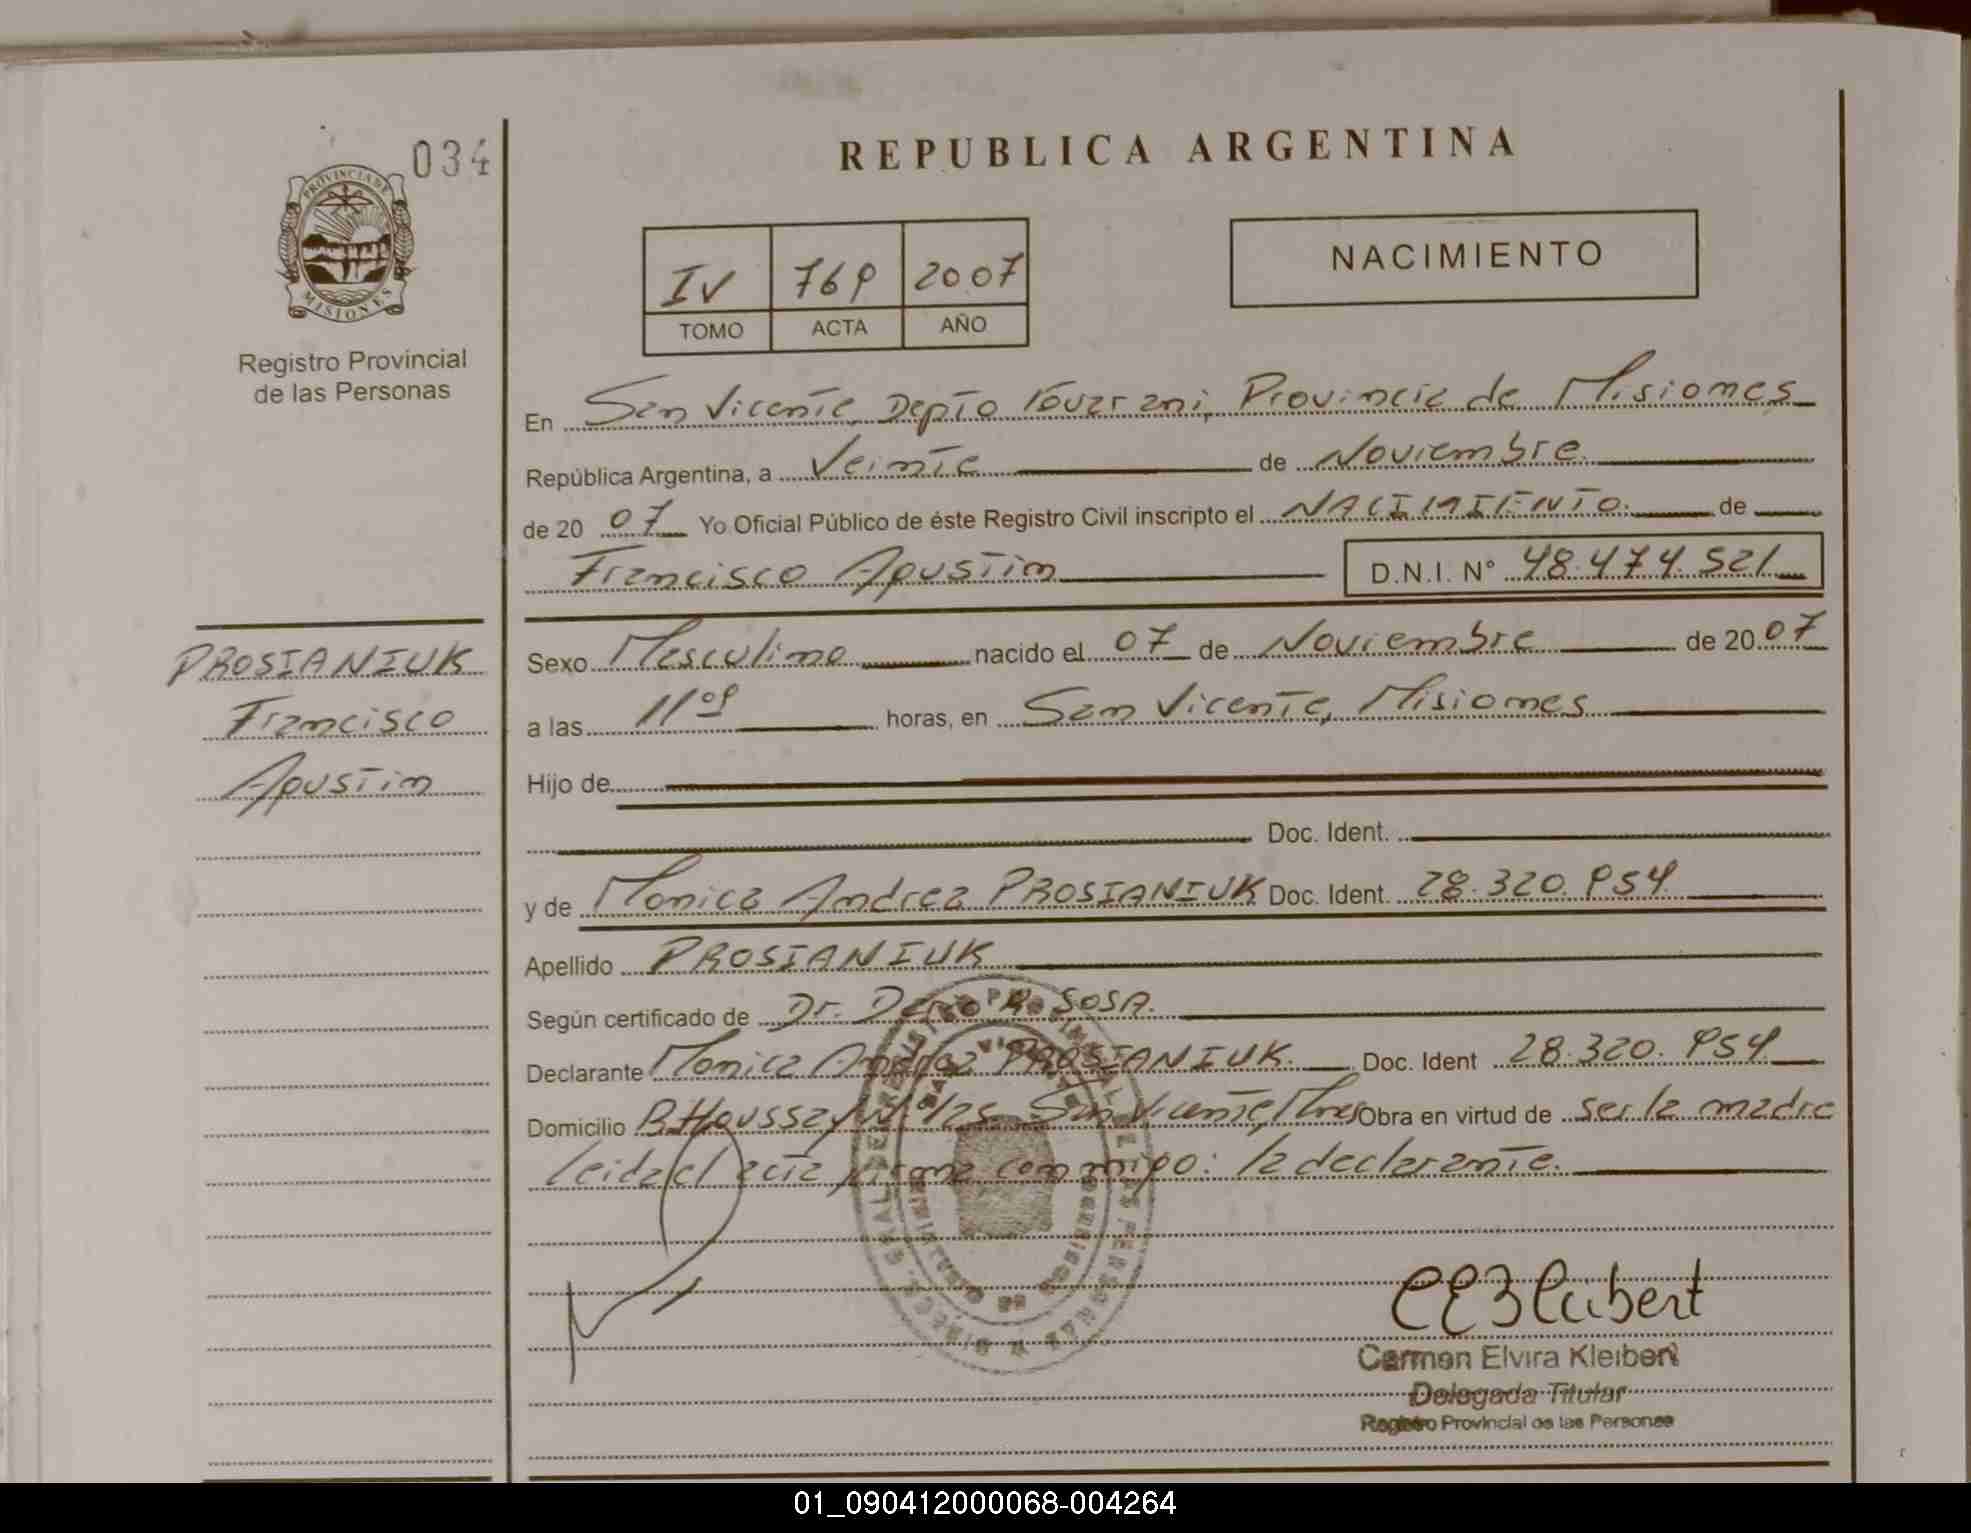 034
PROVINCIA DE
MISIONES
Registro Provincial
de las Personas
REPUBLICA ARGENTINA
IV 769 2007
TOMO ACTA AÑO
NACIMIENTO
En San Vicente, Depto Guarani, Provincia de Misiones
República Argentina, a Veinte de Noviembre
de 20 07 Yo Oficial Público de éste Registro Civil inscripto el NACIMIENTO de
Francisco Agustin D.N.I. N° 48.474.521
PROSIANIUK
Francisco
Agustin
Sexo Masculino nacido el 07 de Noviembre de 20 07
a las 11 09 horas, en San Vicente, Misiones
Hijo de
Doc. Ident.
y de Monica Andrea PROSIANIUK Doc. Ident. 28.320.954
Apellido PROSIANIUK
Según certificado de Dr. R. SOSA.
Declarante Monica Andrea PROSIANIUK. Doc. Ident 28.320.954
Domicilio B. Houssay San Vicente, Mnes Obra en virtud de ser la madre
leida el acta firma conmigo: la declarante.
CEKleibert
Carmen Elvira Kleibert
Delegada Titular
Registro Provincial de las Personas
01_090412000068-004264